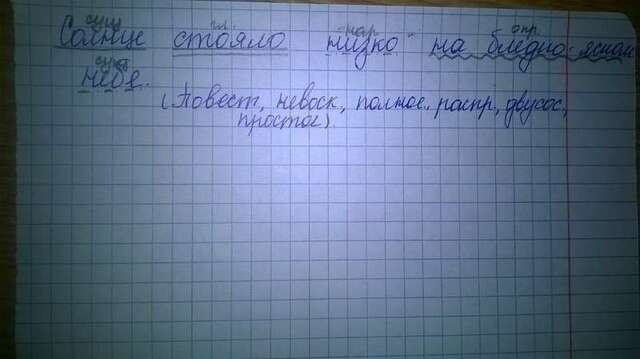 сущ гл. нар. опр.
Солнце стояло низко на бледно-ясном
сущ
небе.
(Повест, невоск, полное, распр, двусос,
простое)